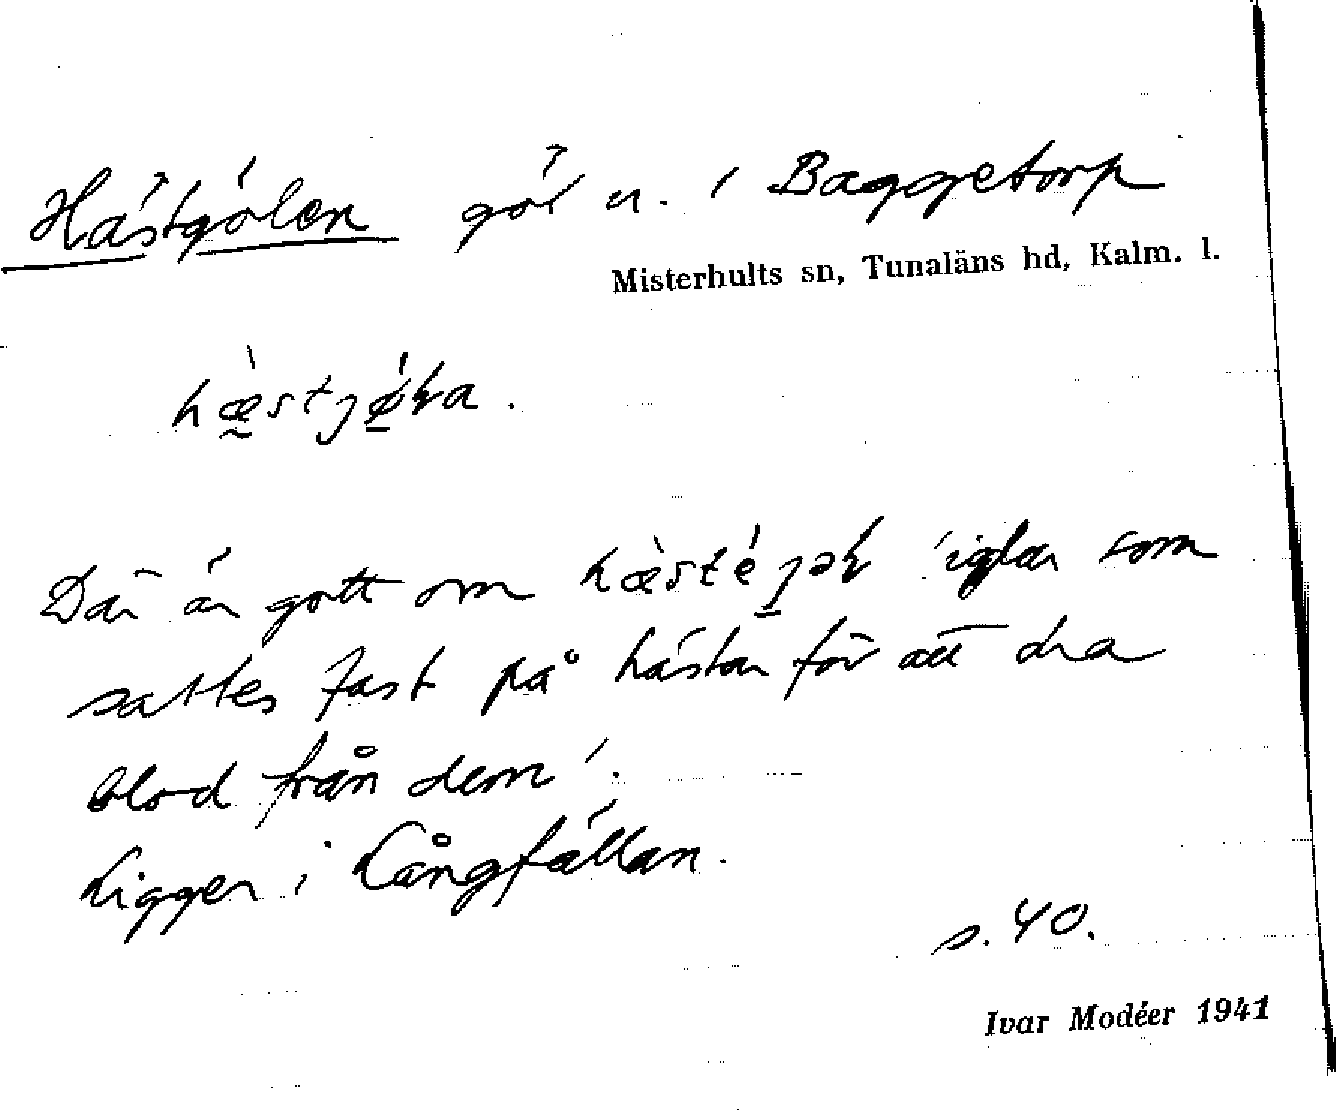 Hästgölen göl n. i Baggetorp
Misterhults sn, Tunaläns hd, Kalm. l.
Där är gott om 'iglar som
sattes fast på hästar för att dra
blod från dem'.
Ligger i Långfällan.
s. 40.
Ivar Modéer 1941